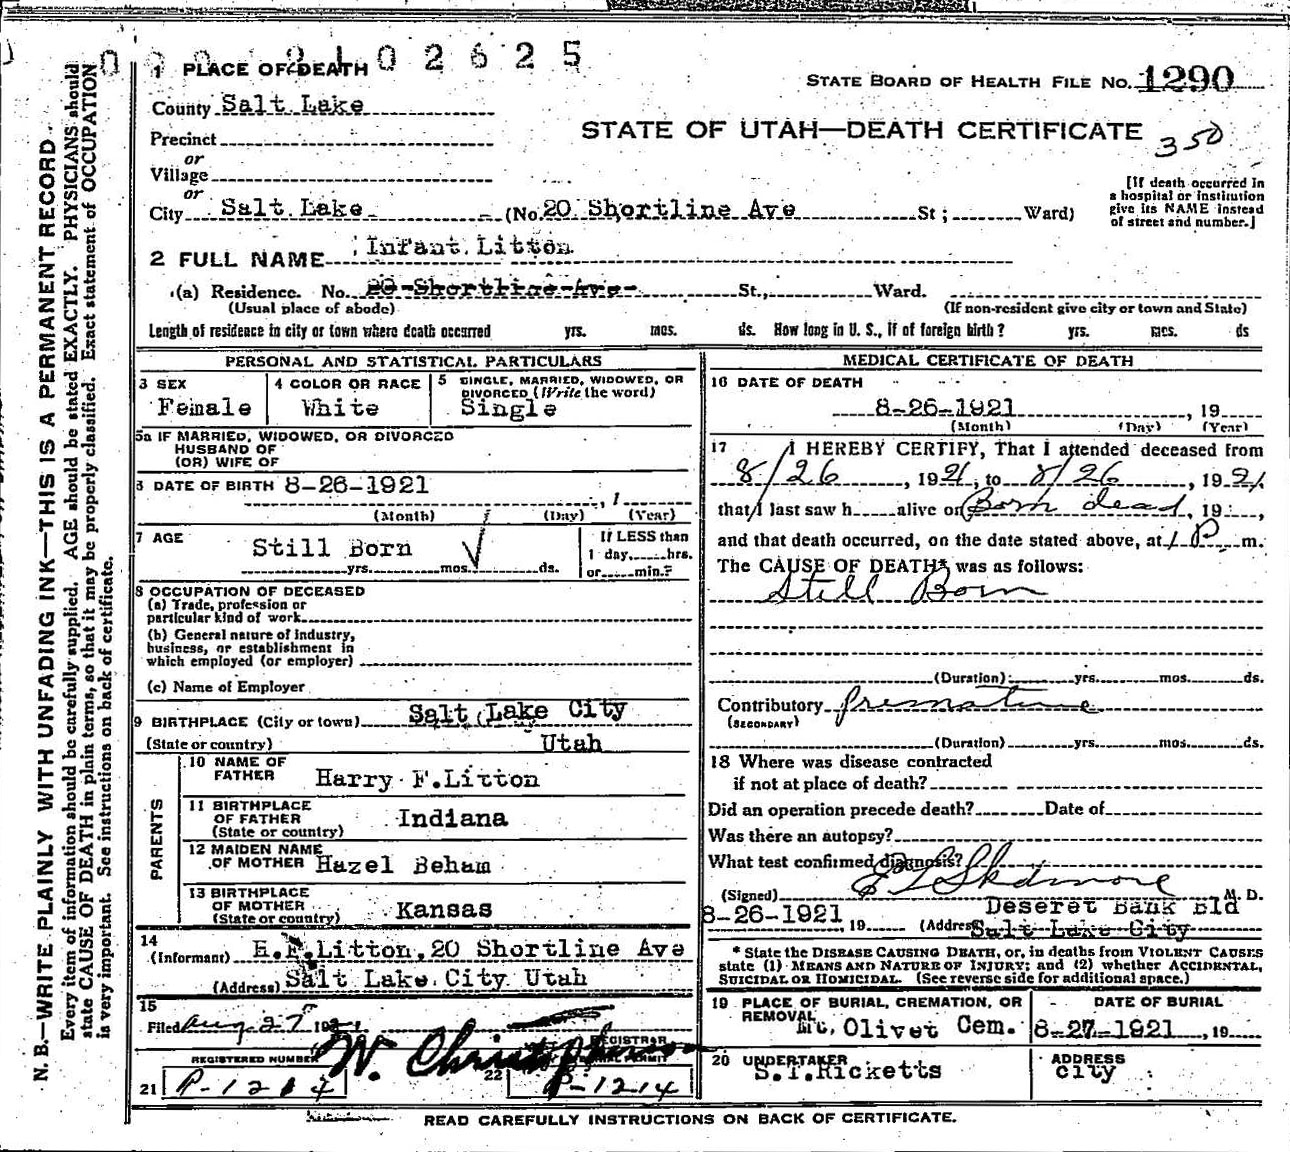 2102625
1 PLACE OF DEATH
STATE BOARD OF HEALTH FILE No. 1290
County Salt Lake
STATE OF UTAH—DEATH CERTIFICATE
350
Precinct
or
Village
or
City Salt Lake (No. 20 Shortline Ave St; Ward)
[If death occurred in
a hospital or institution
give its NAME instead
of street and number.]
2 FULL NAME Infant Litton
(a) Residence. No. 20 Shortline Ave St., Ward.
(Usual place of abode) (If non-resident give city or town and State)
Length of residence in city or town where death occurred yrs. mos. ds. How long in U. S., if of foreign birth? yrs. mos. ds
PERSONAL AND STATISTICAL PARTICULARS
3 SEX
Female
4 COLOR OR RACE
White
5 SINGLE, MARRIED, WIDOWED, OR
DIVORCED (Write the word)
Single
5a IF MARRIED, WIDOWED, OR DIVORCED
HUSBAND OF
(OR) WIFE OF
6 DATE OF BIRTH 8-26-1921
, 1
(Month) (Day) (Year)
7 AGE
Still Born
yrs. mos. ds.
If LESS than
1 day, hrs.
or min.?
8 OCCUPATION OF DECEASED
(a) Trade, profession or
particular kind of work
(b) General nature of industry,
business, or establishment in
which employed (or employer)
(c) Name of Employer
9 BIRTHPLACE (City or town) Salt Lake City
(State or country) Utah
PARENTS
10 NAME OF
FATHER Harry F. Litton
11 BIRTHPLACE
OF FATHER Indiana
(State or country)
12 MAIDEN NAME
OF MOTHER Hazel Beham
13 BIRTHPLACE
OF MOTHER Kansas
(State or country)
14
(Informant) H.F. Litton, 20 Shortline Ave
(Address) Salt Lake City Utah
15
Filed Aug 27 1921
W. Christopherson
REGISTRAR
REGISTERED NUMBER
PERMIT
21 P-1214
22 P-1214
MEDICAL CERTIFICATE OF DEATH
16 DATE OF DEATH
8-26-1921, 19
(Month) (Day) (Year)
17 I HEREBY CERTIFY, That I attended deceased from
8/26, 1921, to 8/26, 1921,
that I last saw h alive on Born dead, 19 ,
and that death occurred, on the date stated above, at 1 P. m.
The CAUSE OF DEATH* was as follows:
Still Born
(Duration) yrs. mos. ds.
Contributory premature
(SECONDARY)
(Duration) yrs. mos. ds.
18 Where was disease contracted
if not at place of death?
Did an operation precede death? Date of
Was there an autopsy?
What test confirmed diagnosis?
(Signed) E L Skidmore M. D.
8-26-1921, 19 (Address) Deseret Bank Bld
Salt Lake City
* State the DISEASE CAUSING DEATH, or, in deaths from VIOLENT CAUSES
state (1) MEANS AND NATURE OF INJURY; and (2) whether ACCIDENTAL,
SUICIDAL OR HOMICIDAL. (See reverse side for additional space.)
19 PLACE OF BURIAL, CREMATION, OR
REMOVAL Mt. Olivet Cem.
DATE OF BURIAL
8-27-1921, 19
20 UNDERTAKER
S.T. Ricketts
ADDRESS
City
READ CAREFULLY INSTRUCTIONS ON BACK OF CERTIFICATE.
N. B.—WRITE PLAINLY WITH UNFADING INK—THIS IS A PERMANENT RECORD
Every item of information should be carefully supplied. AGE should be stated EXACTLY. PHYSICIANS should
state CAUSE OF DEATH in plain terms, so that it may be properly classified. Exact statement of OCCUPATION
is very important. See instructions on back of certificate.